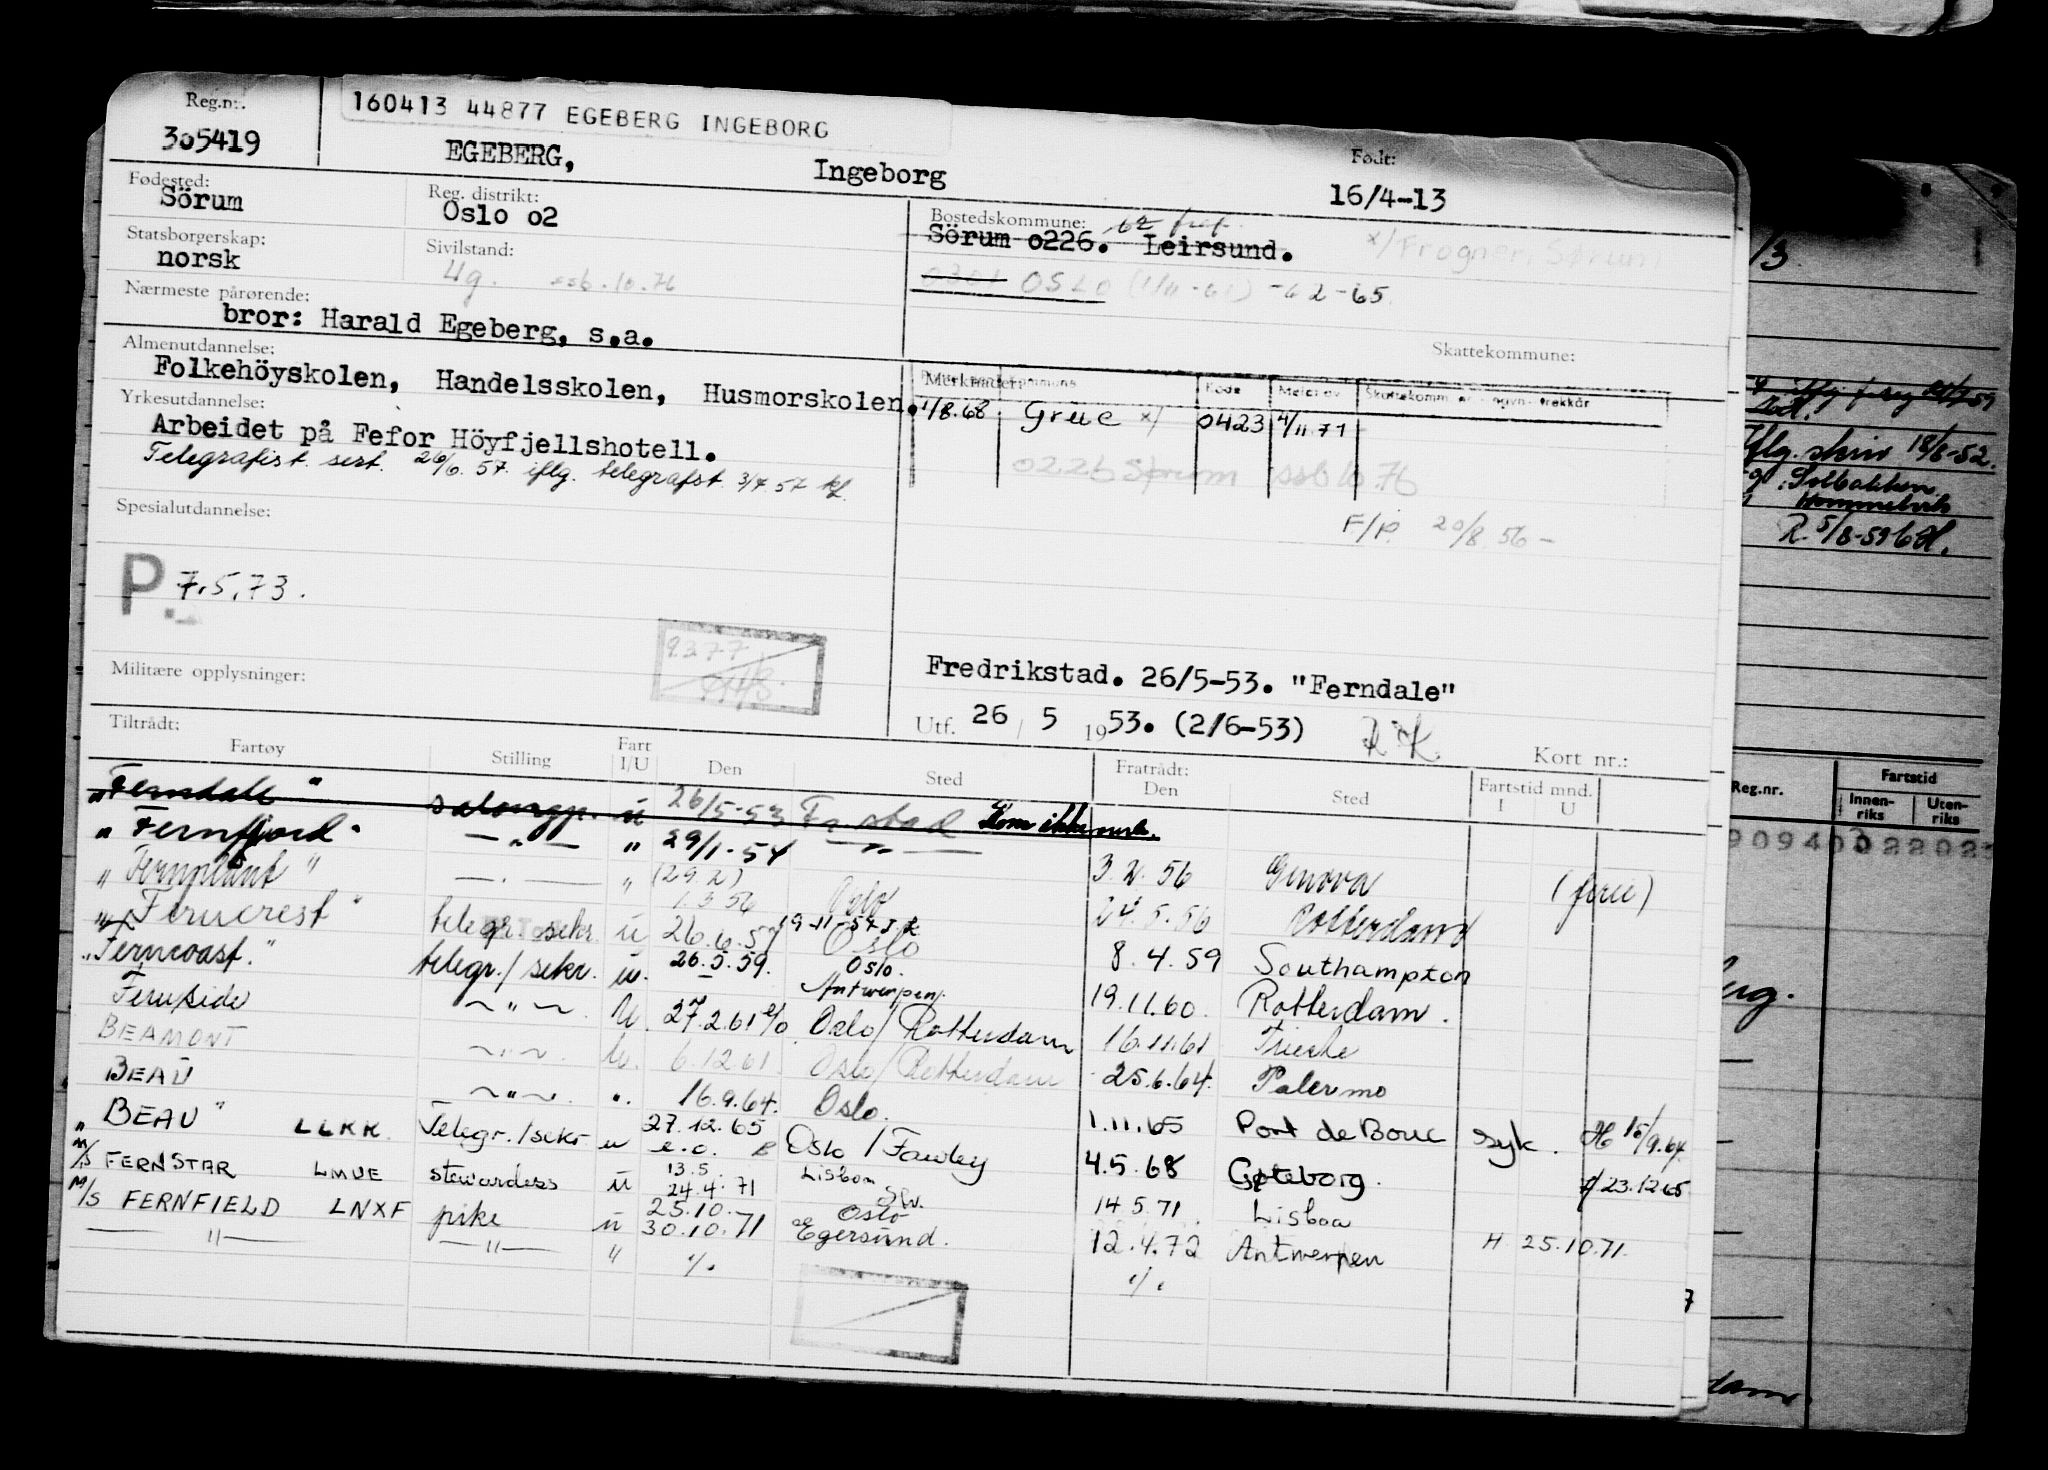 Reg.nr.
305419
160413 44877 EGEBERG INGEBORG
EGEBERG, Ingeborg
Født:
16/4-13
Fødested:
Sörum
Reg. distrikt:
Oslo o2
Bostedskommune:
Sörum o226. Leirsund.
x/ Frogner, Sørum
Statsborgerskap:
norsk
Sivilstand:
Ug. ssb. 10.76
0301 OSLO (1/11-61) -62-65
Nærmeste pårørende:
bror: Harald Egeberg, s.a.
Skattekommune:
Almenutdannelse:
Folkehöyskolen, Handelsskolen, Husmorskolen.
Merknader:
Kode
1/8.68 Grue x/ 0423 4/11 71
Yrkesutdannelse:
Arbeidet på Fefor Höyfjellshotell.
0226 Sørum ssb 10.76
Telegrafist sert. 26/6.57 iflg. telegrafst. 3/7.57
Spesialutdannelse:
F/p. 20/8 56 -
P. 7.5.73.
9377
Militære opplysninger:
Fredrikstad. 26/5-53. "Ferndale"
Utf. 26 / 5 1953. (2/6-53)
Tiltrådt:
Kort nr.:
Fartøy Stilling Fart I/U Den Sted Fratrådt: Den Sted Fartstid mnd. I U
"Ferndale" salongp. u 26/5-53 Fr.stad Kom ikke
"Fernfjord" — " — " 29/1-54 — " —
3.2.56 Genova (ferie)
"Fernplant" — " — " (29.2) 1.3 56 Oslo
24.5.56 Rotterdam
"Ferncrest" telegr. sekr. u 26.6.57 Oslo
19-11-57
8.4.59 Southampton
"Ferncoast" telegr./sekr. u. 26.5.59. Oslo. Antwerpen.
19.11.60. Rotterdam.
Fernside ~ " ~ U. 27.2.61 Oslo/Rotterdam
16.11.61 Trieste
BEAMONT ~ " ~ U. 6.12.61 Oslo/Rotterdam
25.6.64. Palermo
BEAU ~ " ~ ". 16.9.64. Oslo.
1.11.65 Port de Bouc syk. H 15/9.64.
"BEAU" LLKK Telegr./sekr u 27.12.65 e.o. Oslo / Fawley
4.5.68 Gøteborg. 23.12 65
M/S FERNSTAR LMUE stewardess u 13.5. 24.4.71 Lisbon
14.5.71 Lisboa
M/S FERNFIELD LNXF pike u 25.10. 30.10.71 Oslo Egersund.
12.4.72 Antwerpen H 25.10.71.
— " — — " — " ./.
./.
13.
iflg. skriv 18/8-52.
Solbakken
R. 5/8-59
Reg.nr. Fartstid
Innenriks Utenriks